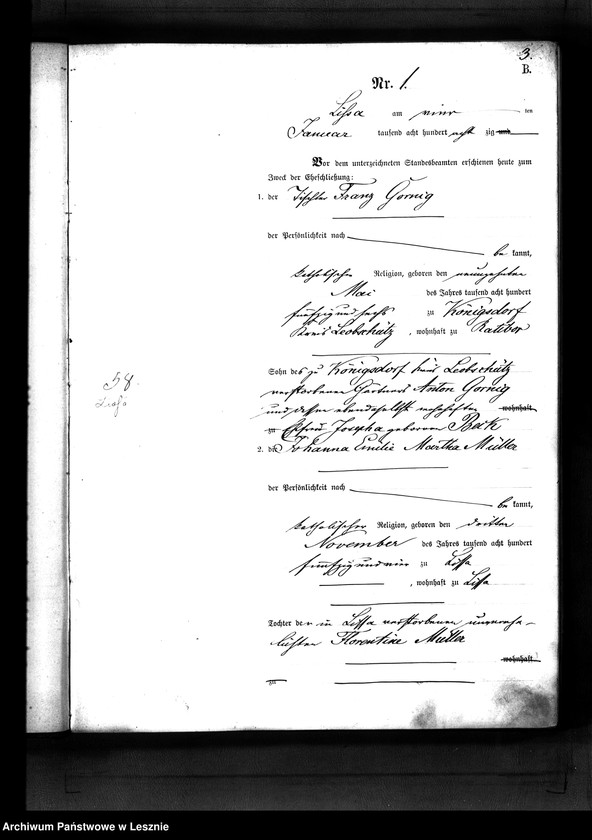 3.
B.
Nr. 1.
Lissa am vier ten
Januar tausend acht hundert acht zig und
Vor dem unterzeichneten Standesbeamten erschienen heute zum
Zweck der Eheschließung:
1. der Tischler Franz Gornig
der Persönlichkeit nach
be kannt,
katholischer Religion, geboren den neunzehnten
Mai des Jahres tausend acht hundert
fünfzig und sechs zu Königsdorf
Kreis Leobschütz, wohnhaft zu Ratibor
Sohn des zu Königsdorf Kreis Leobschütz
verstorbenen Gärtners Anton Gornig
und dessen ebendaselbst wohnhaft
zu Ehefrau Josepha geborenen Beck
2. die Johanna Emilie Martha Müller
der Persönlichkeit nach
be kannt,
katholischer Religion, geboren den dritten
November des Jahres tausend acht hundert
fünfzig und vier zu Lissa
, wohnhaft zu Lissa
58.
Lissa
Tochter der in Lissa verstorbenen unverehe-
lichten Florentine Müller
wohnhaft
zu
Archiwum Państwowe w Lesznie